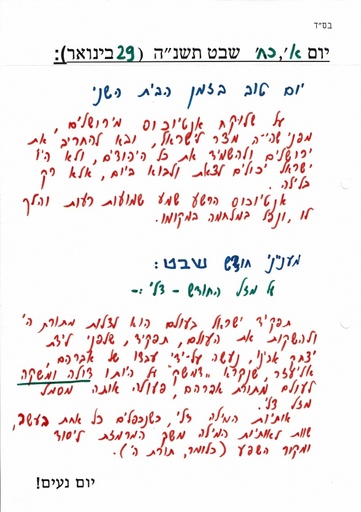 בס״ד
יום א', כח' שבט תשנ״ה (29 בינואר):
יום טוב בזמן הבית השני
על שלוקח אנטיוכוס מירושלים,
מפני שהי״ה מצר לישראל, ובא להחריב את
ירושלים ולהשמיד את כל היהודים, ולא היו
ישראל יכולים לצאת ולבוא ביום, אלא רק
בלילה.
אנטיוכוס הרשע שמע שמועות רעות והלך
לו, ונפל במלחמה במקומו.
מעניני חודש שבט:
על מזל החודש - דלי :-
תפקיד ישראל בעולם הוא לדלות מתורת ה'
ולהשקות את העולם, תפקיד, שלפני לידת
יצחק אבינו, נעשה על-ידי עבדו של אברהם,
אליעזר, שנקרא ״דמשק״ על היותו דולה ומשקה
לעולם מתורת אברהם, פעולה אותה מסמל
מזל דלי.
אותיות המילה דלי, כשנכפלים כל אחת בעשר,
שוות לאותיות המילה משק המרמזת ליסוד
ומקור השפע (כלומר, תורת ה').
יום נעים!